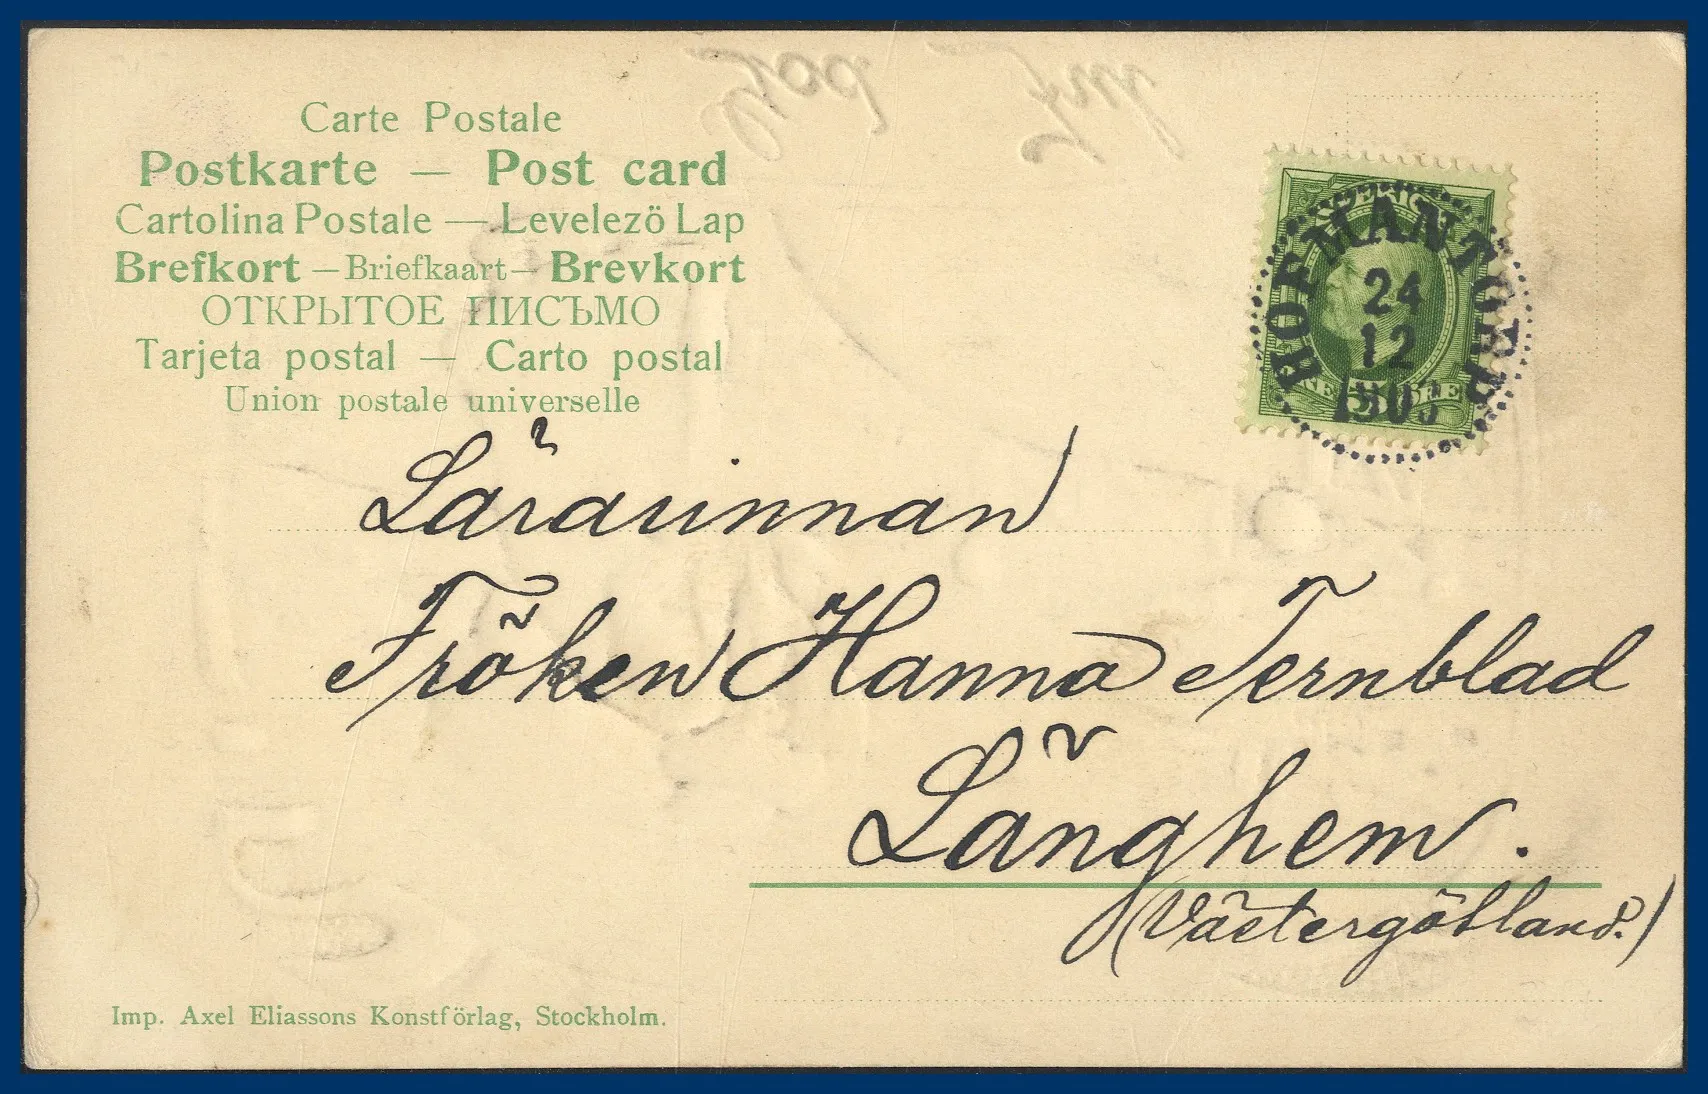 Carte Postale
Postkarte — Post card
Cartolina Postale — Levelező Lap
Brefkort — Briefkaart — Brevkort
ОТКРЫТОЕ ПИСЬМО
Tarjeta postal — Carto postal
Union postale universelle
SVERIGE
HOFMANTORP
24
12
FEM 5 ÖRE
Lärarinnan
Fröken Hanna Ternblad
Länghem.
(Västergötland.)
Imp. Axel Eliassons Konstförlag, Stockholm.